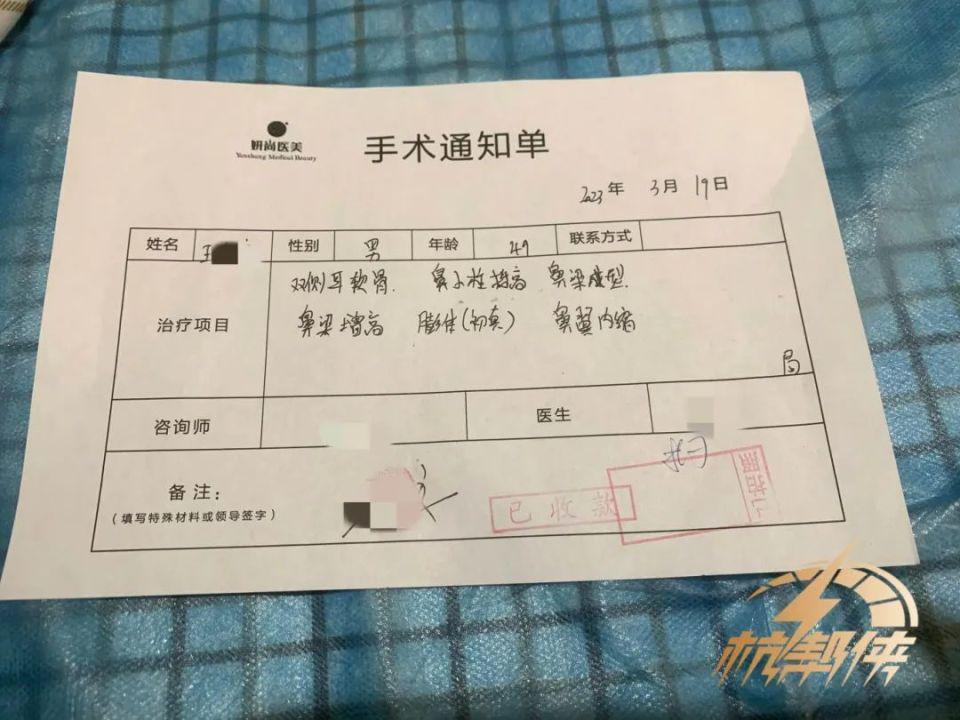 妍尚医美
Yanshang Medical Beauty
手术通知单
2023年 3月 19日
姓名 王 性别 男 年龄 49 联系方式
治疗项目
双侧耳软骨. 鼻小柱撑高 鼻梁成型.
鼻梁增高 膨体(初真) 鼻翼内缩
局
咨询师 医生
备注:
(填写特殊材料或领导签字)
已收款
杭帮侠